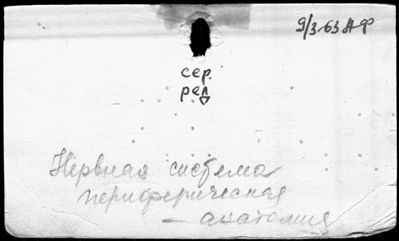 9/3-63 АФ
сер.
ред
Нервная система
периферическая
— анатомия